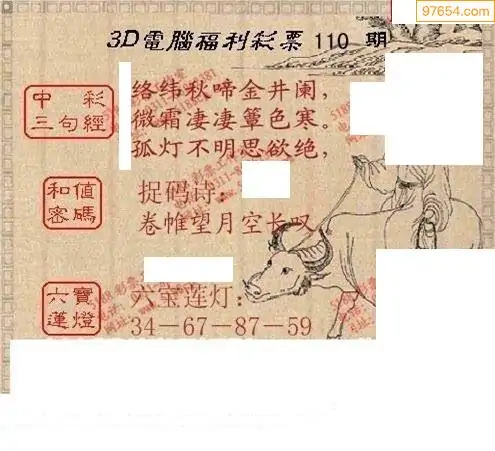 97654.com
3D電腦福利彩票 110 期
中彩
三句經
络纬秋啼金井阑，
微霜凄凄簟色寒。
孤灯不明思欲绝，
和值
密碼
捉码诗：
卷帷望月空长叹
六寶
蓮燈
六宝莲灯：
34—67—87—59